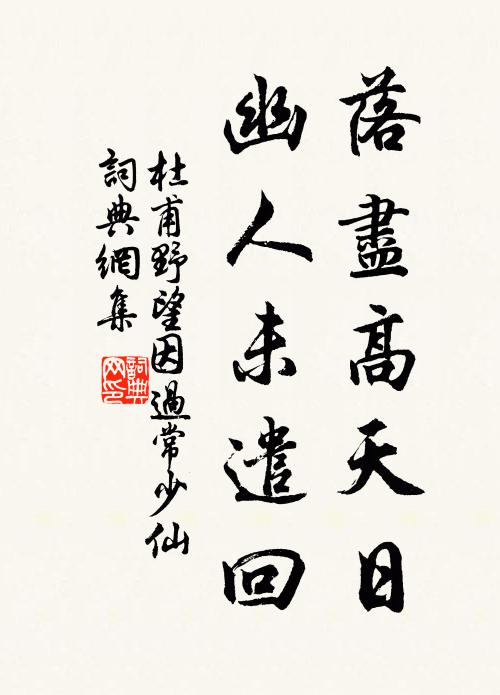 落盡高天日
幽人未遣回
杜甫野望因過常少仙
詞典網集
詞典
网印